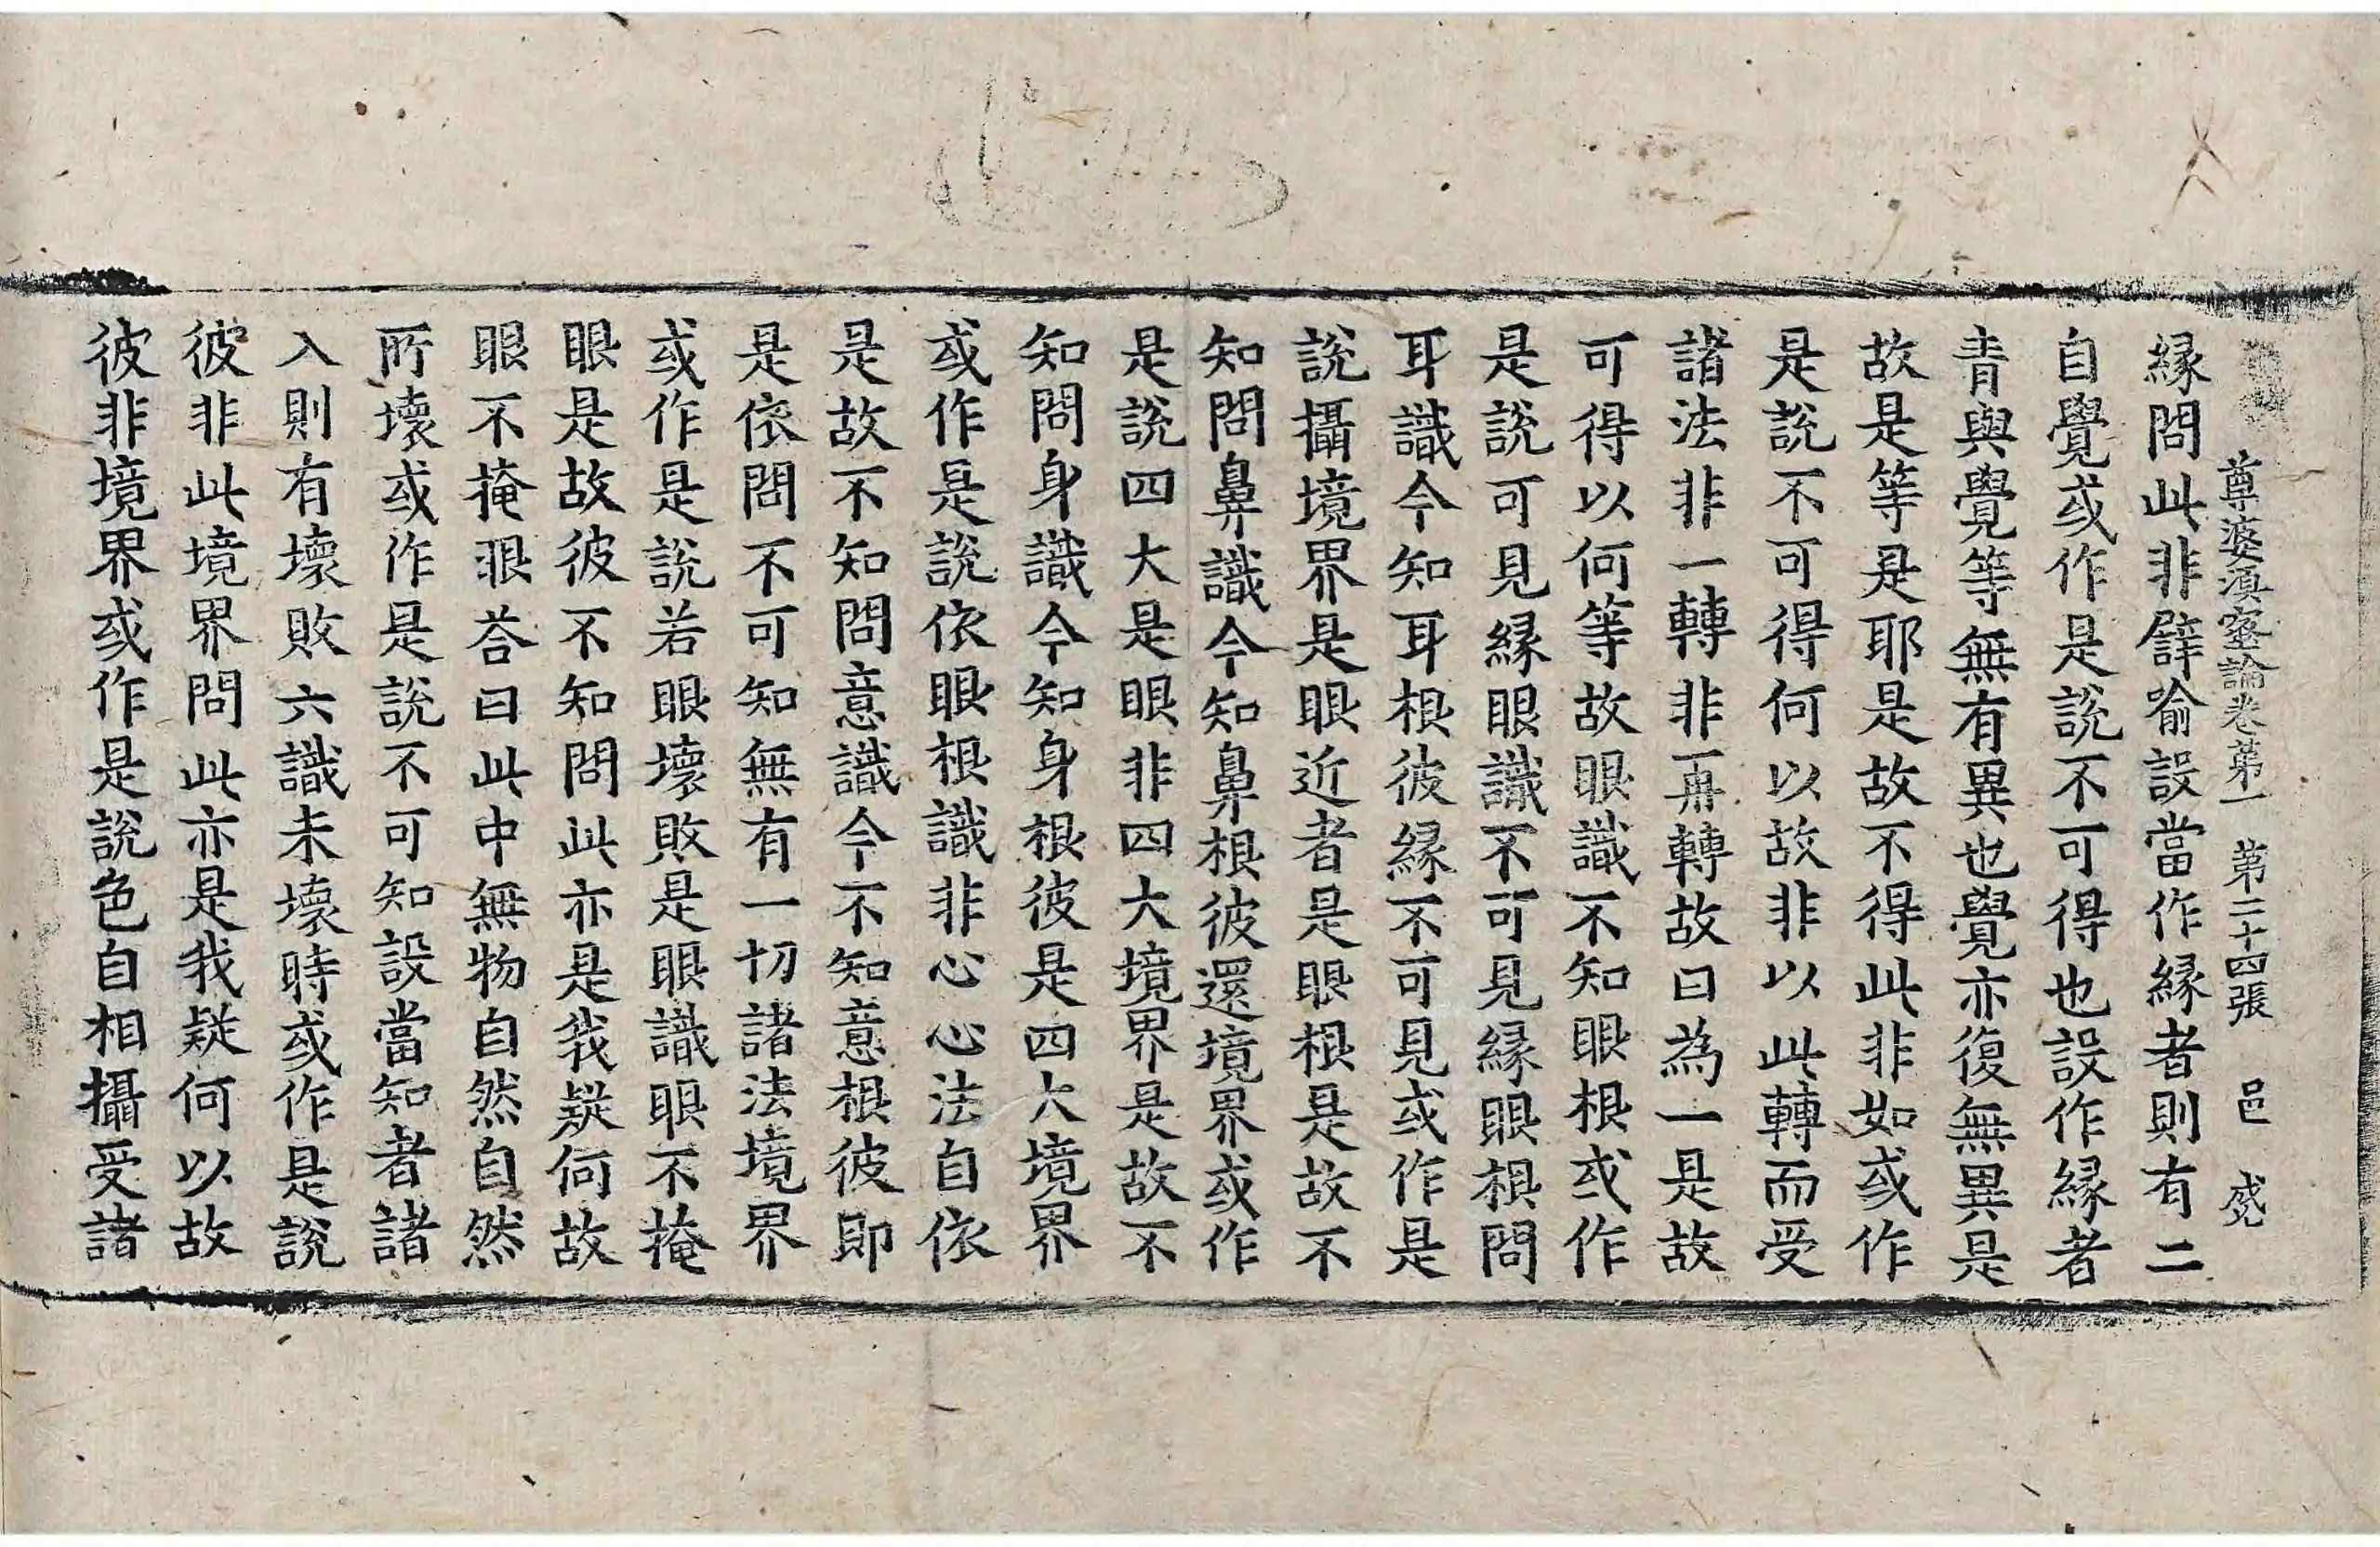 尊婆湏蜜論卷第一 第二十四張 邑
縁問此非譬喻設當作縁者則有二
自覺或作是說不可得也設作縁者
青與覺等無有異也覺亦復無異是
故是等是耶是故不得此非如或作
是說不可得何以故非以此轉而受
諸法非一轉非再轉故曰為一是故
可得以何等故眼識不知眼根或作
是說可見縁眼識不可見縁眼根問
耳識今知耳根彼縁不可見或作是
說攝境界是眼近者是眼根是故不
知問鼻識今知鼻根彼還境界或作
是說四大是眼非四大境界是故不
知問身識今知身根彼是四大境界
或作是說依眼根識非心心法自依
是故不知問意識今不知意根彼即
是依問不可知無有一切諸法境界
或作是說若眼壞敗是眼識眼不掩
眼是故彼不知問此亦是我疑何故
眼不掩眼荅曰此中無物自然自然
所壞或作是說不可知設當知者諸
入則有壞敗六識未壞時或作是說
彼非此境界問此亦是我疑何以故
彼非境界或作是說色自相攝受諸